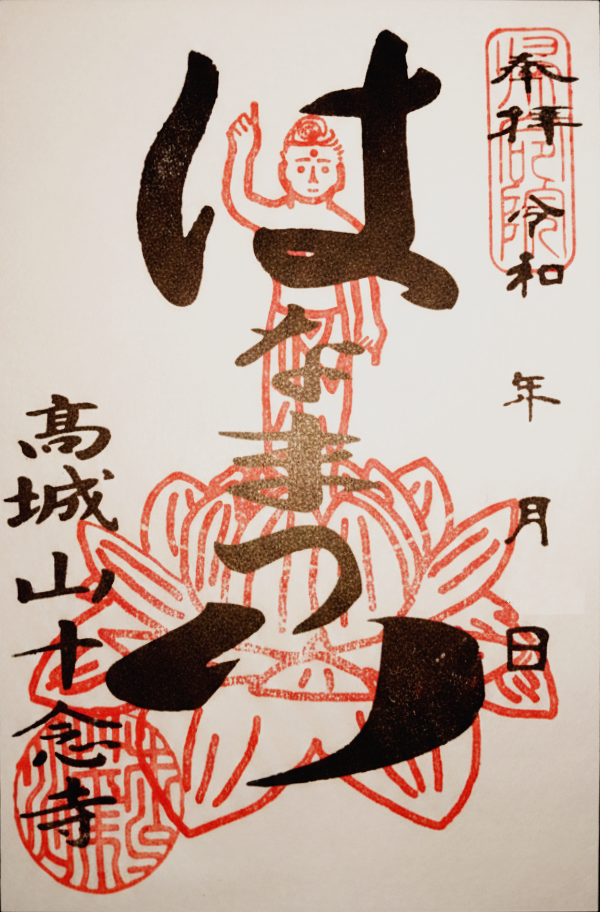 奉拝 令和 年 月 日
はなまつり
高城山十念寺